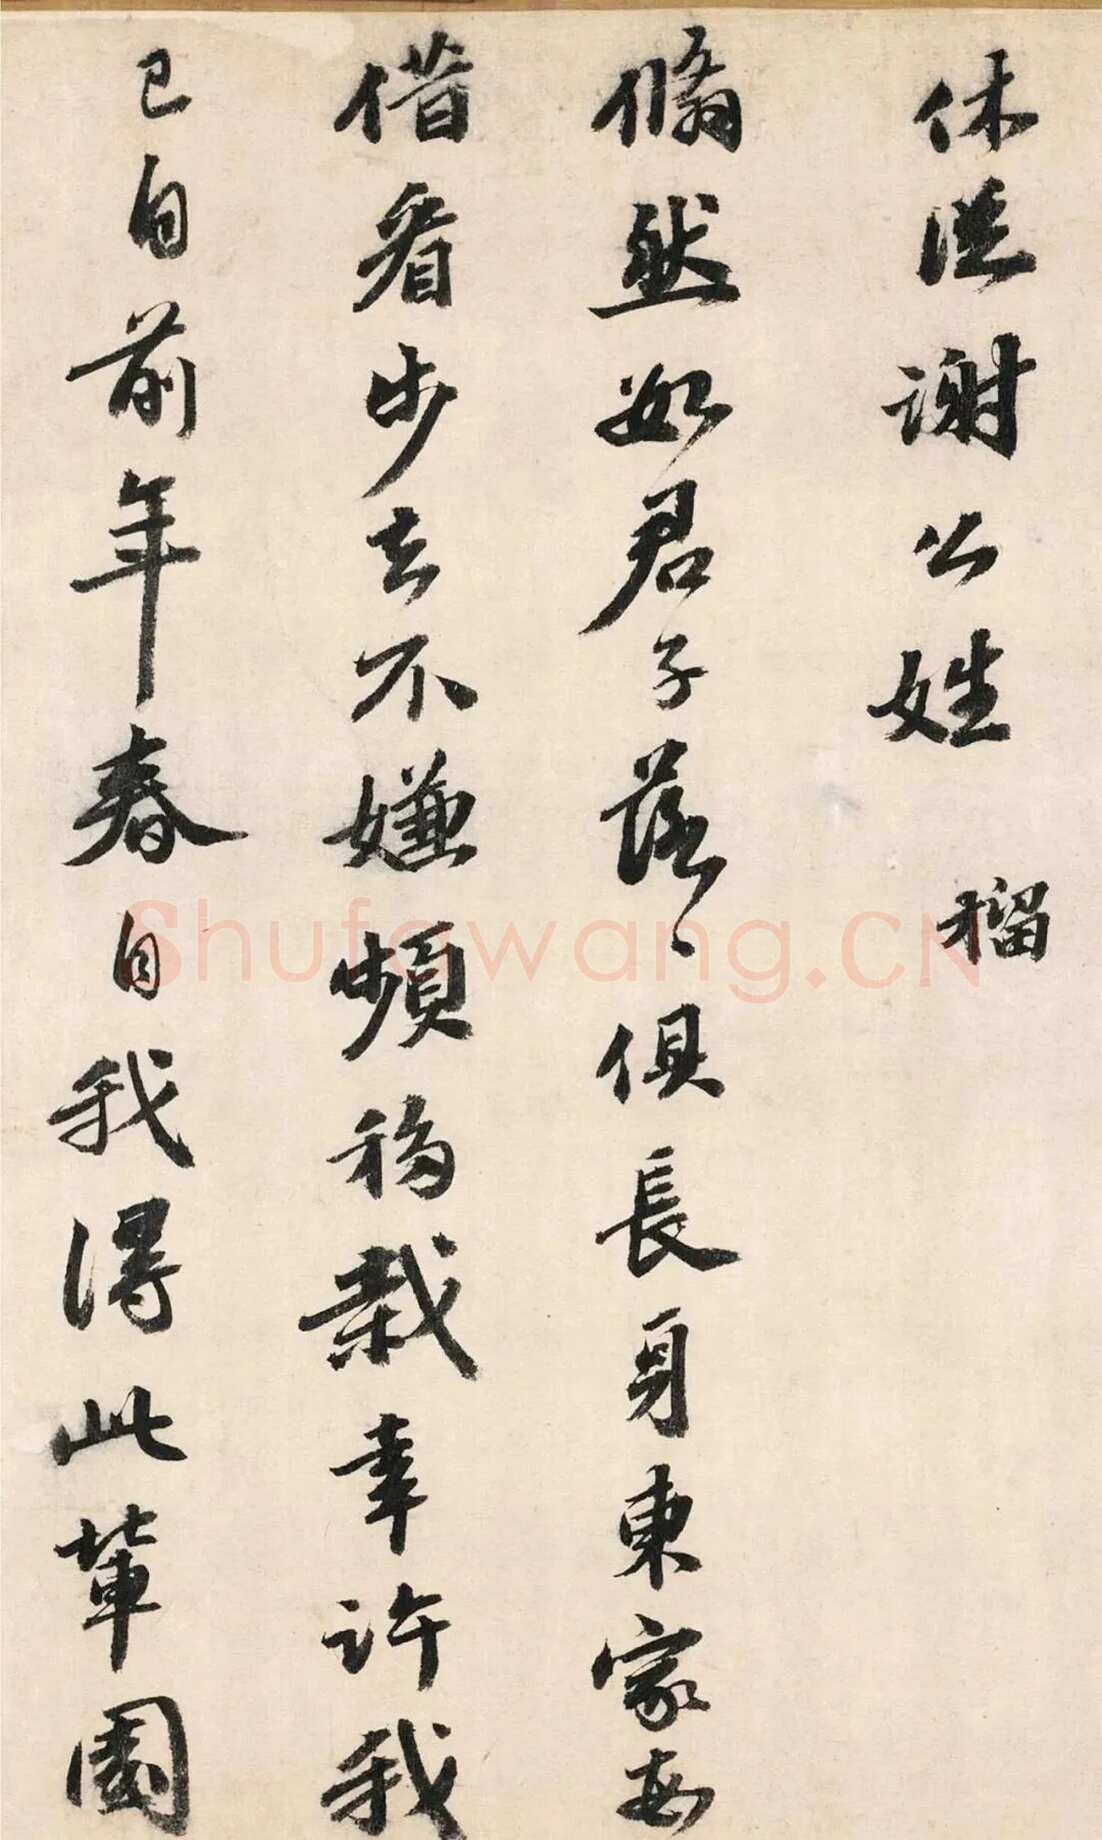 休從謝公姓 榴
翛然如君子落々俱長身東家每
借看步去不嫌頻移栽幸許我
已自前年春自我得此輩園
Shufawang.CN